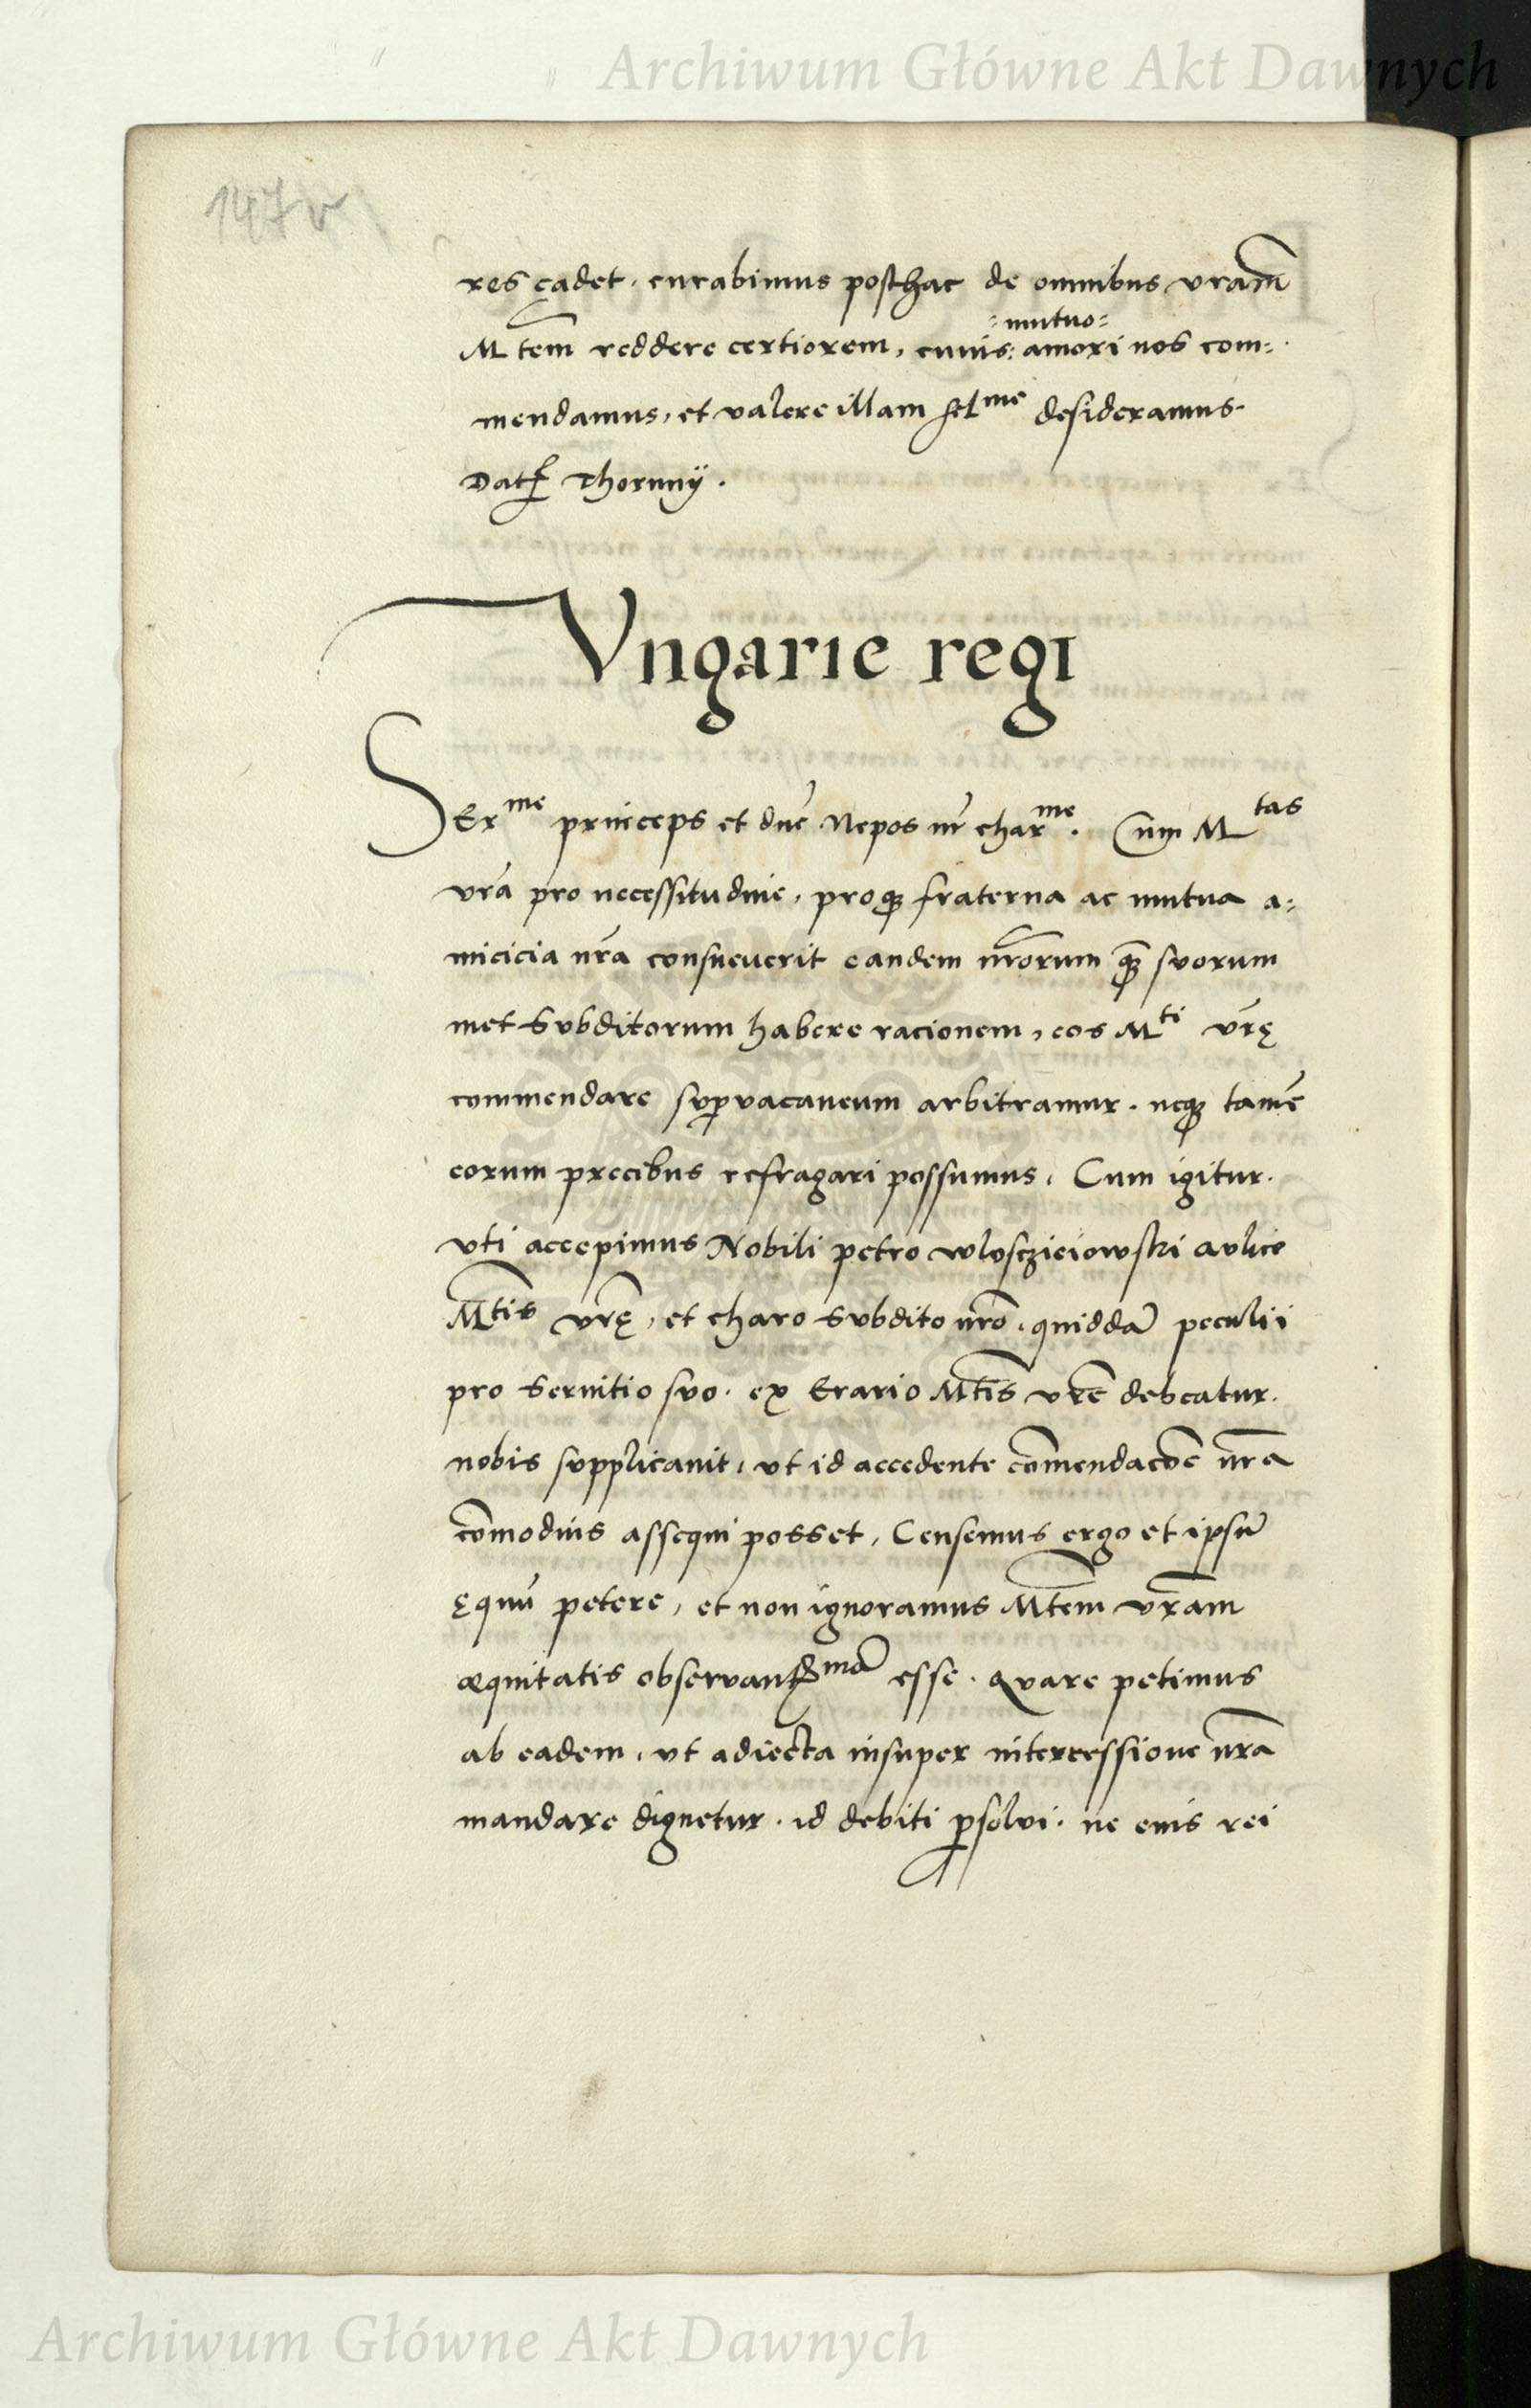 Archiwum Główne Akt Dawnych
147v
res cadet, curabimus posthac de omnibus vram̃
M tem̃ reddere certiorem, cuius : amori nos com=
=mutuo=
mendamus, et valere illam fel me desideramus.
Dat Thorunij.
Vngarie regi
SEr me princeps et dñe Nepos nr̃ char me. Cum M tas
vrã pro necessitudine, proq; fraterna ac mutua a=
micicia nrã consueuerit eandem nrõrum quã suorum
met subditorum habere racionem, eos M ti vrę̃
commendare supvacaneum arbitramur. neq; tamẽ
eorum precibus refragari possumus, Cum igitur.
vti accepimus Nobili petro wlosczieiowski aulico
M̃tis vrę̃, et charo subdito nrõ, quiddã peculii
pro seruitio suo. ex Erario M̃tis vrẽ debeatur.
nobis supplicauit, vt id accedente com̃endacõe nrã
com̃odius assequi posset, Censemus ergo et ipsũ
ęquũ petere, et non ignoramus M̃tem vram̃
æquitatis obseruan mã esse. Quare petimus
ab eadem, vt adiecta insuper intercessione nrã
mandare dignetur. id debiti psolui. ne eius rei
Archiwum Główne Akt Dawnych